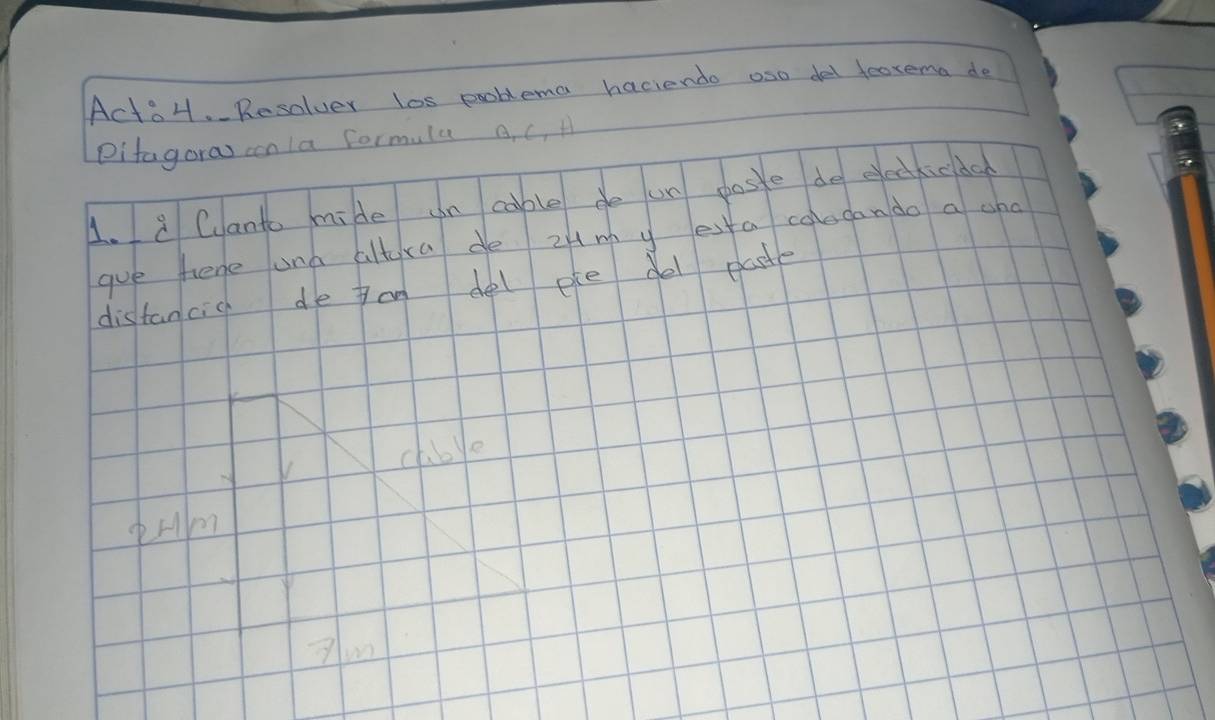 Act: 4.- Resolver los problema haciendo oso del teorema de
Pitagoras con la formula A, C, H
1.- ¿ Cuanto mide un cable de un poste de electricidad
que tiene una altura de 24 m y esta colocando a una
distancia de 7 cm del pie del poste
cable
24m
7m